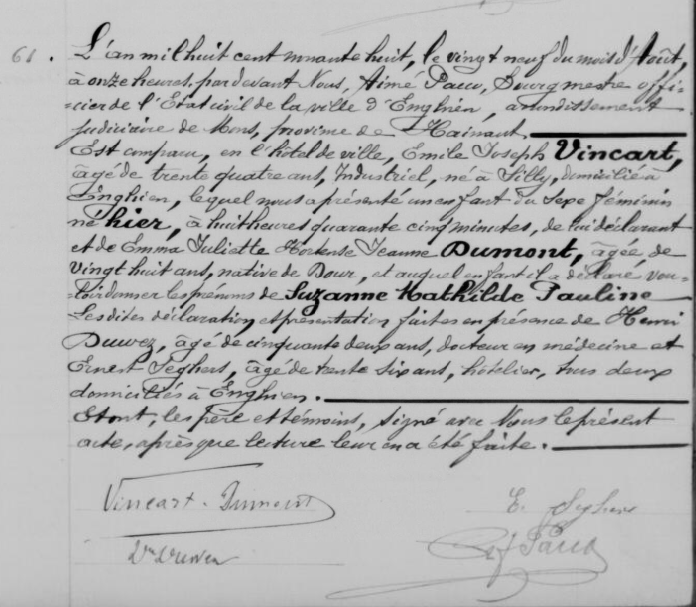 61.
L'an mil huit cent nonante huit, le vingt neuf du mois d'Août,
à onze heures, par devant Nous, Aimé Paux, Bourgmestre offi-
=cier de l'Etat civil de la ville d'Enghien, arrondissement
judiciaire de Mons, province de Hainaut
Est comparu, en l'hôtel de ville, Emile Joseph Vincart,
âgé de trente quatre ans, Industriel, né à Silly, domicilié à
Enghien, lequel nous a présenté un enfant du sexe féminin
né hier, à huit heures quarante cinq minutes, de lui déclarant
et de Emma Juliette Hortense Jeanne Dumont, âgée de
vingt huit ans, native de Dour, et auquel enfant il a déclaré vou-
=loir donner les prénoms de Suzanne Mathilde Pauline
Lesdites déclaration et présentation faites en présence de Henri
Duwez, âgé de cinquante deux ans, docteur en médecine et
Ernest Seghers, âgé de trente six ans, hôtelier, tous deux
domiciliés à Enghien.
Et ont, les père et témoins, signé avec Nous le présent
acte, après que lecture leur en a été faite.
Vincart-Dumont
E. Seghers